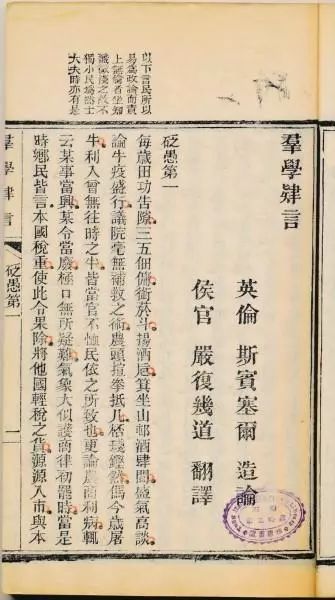 羣學肄言
英倫 斯賓塞爾 造論
侯官 嚴復幾道 翻譯
砭愚第一
每歲田功告隙三五佃傭銜菸斗揚酒巵箕坐山邨酒肆間盛氣高談
論牛疫盛行議院毫無補救之術農頭揎拳抵几桮琖鏗然偶今歲屠
牛利人曾無往時之牛皆當官不恤民依之所致也更論農商利病輒
云某事當興某令當廢極口無所疑難氣象大似護商律初罷時當是
時鄉民皆言本國稅重使此令果除將他國輕稅之貨源源入市與本
以下言民所以
易爲政論而責
上無論者坐知
識微淺之故不
獨小民爲然士
大夫時亦有是
羣學肄言
砭愚第
一